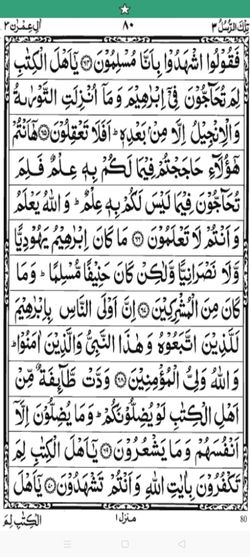 تِلْكَ الرُّسُلُ ٣ ٨٠ اٰلِ عِمْرٰن ٣
فَقُوْلُوا اشْهَدُوْا بِاَنَّا مُسْلِمُوْنَ ﴿٦٤﴾ يٰۤاَهْلَ الْكِتٰبِ
لِمَ تُحَآجُّوْنَ فِيْۤ اِبْرٰهِيْمَ وَمَاۤ اُنْزِلَتِ التَّوْرٰىةُ
وَالْاِنْجِيْلُ اِلَّا مِنْۢ بَعْدِهٖؕ اَفَلَا تَعْقِلُوْنَ ﴿٦٥﴾ هٰۤاَنْتُمْ
هٰۤؤُلَآءِ حَاجَجْتُمْ فِيْمَا لَكُمْ بِهٖ عِلْمٌ فَلِمَ
تُحَآجُّوْنَ فِيْمَا لَيْسَ لَكُمْ بِهٖ عِلْمٌؕ وَاللّٰهُ يَعْلَمُ
وَاَنْتُمْ لَا تَعْلَمُوْنَ ﴿٦٦﴾ مَا كَانَ اِبْرٰهِيْمُ يَهُوْدِيًّا
وَّلَا نَصْرَانِيًّا وَّلٰكِنْ كَانَ حَنِيْفًا مُّسْلِمًاؕ وَمَا
كَانَ مِنَ الْمُشْرِكِيْنَ ﴿٦٧﴾ اِنَّ اَوْلَى النَّاسِ بِاِبْرٰهِيْمَ
لَلَّذِيْنَ اتَّبَعُوْهُ وَهٰذَا النَّبِيُّ وَالَّذِيْنَ اٰمَنُوْاؕ
وَاللّٰهُ وَلِيُّ الْمُؤْمِنِيْنَ ﴿٦٨﴾ وَدَّتْ طَّآئِفَةٌ مِّنْ
اَهْلِ الْكِتٰبِ لَوْ يُضِلُّوْنَكُمْؕ وَمَا يُضِلُّوْنَ اِلَّاۤ
اَنْفُسَهُمْ وَمَا يَشْعُرُوْنَ ﴿٦٩﴾ يٰۤاَهْلَ الْكِتٰبِ لِمَ
تَكْفُرُوْنَ بِاٰيٰتِ اللّٰهِ وَاَنْتُمْ تَشْهَدُوْنَ ﴿٧٠﴾ يٰۤاَهْلَ
الْكِتٰبِ لِمَ منزل ١ 80